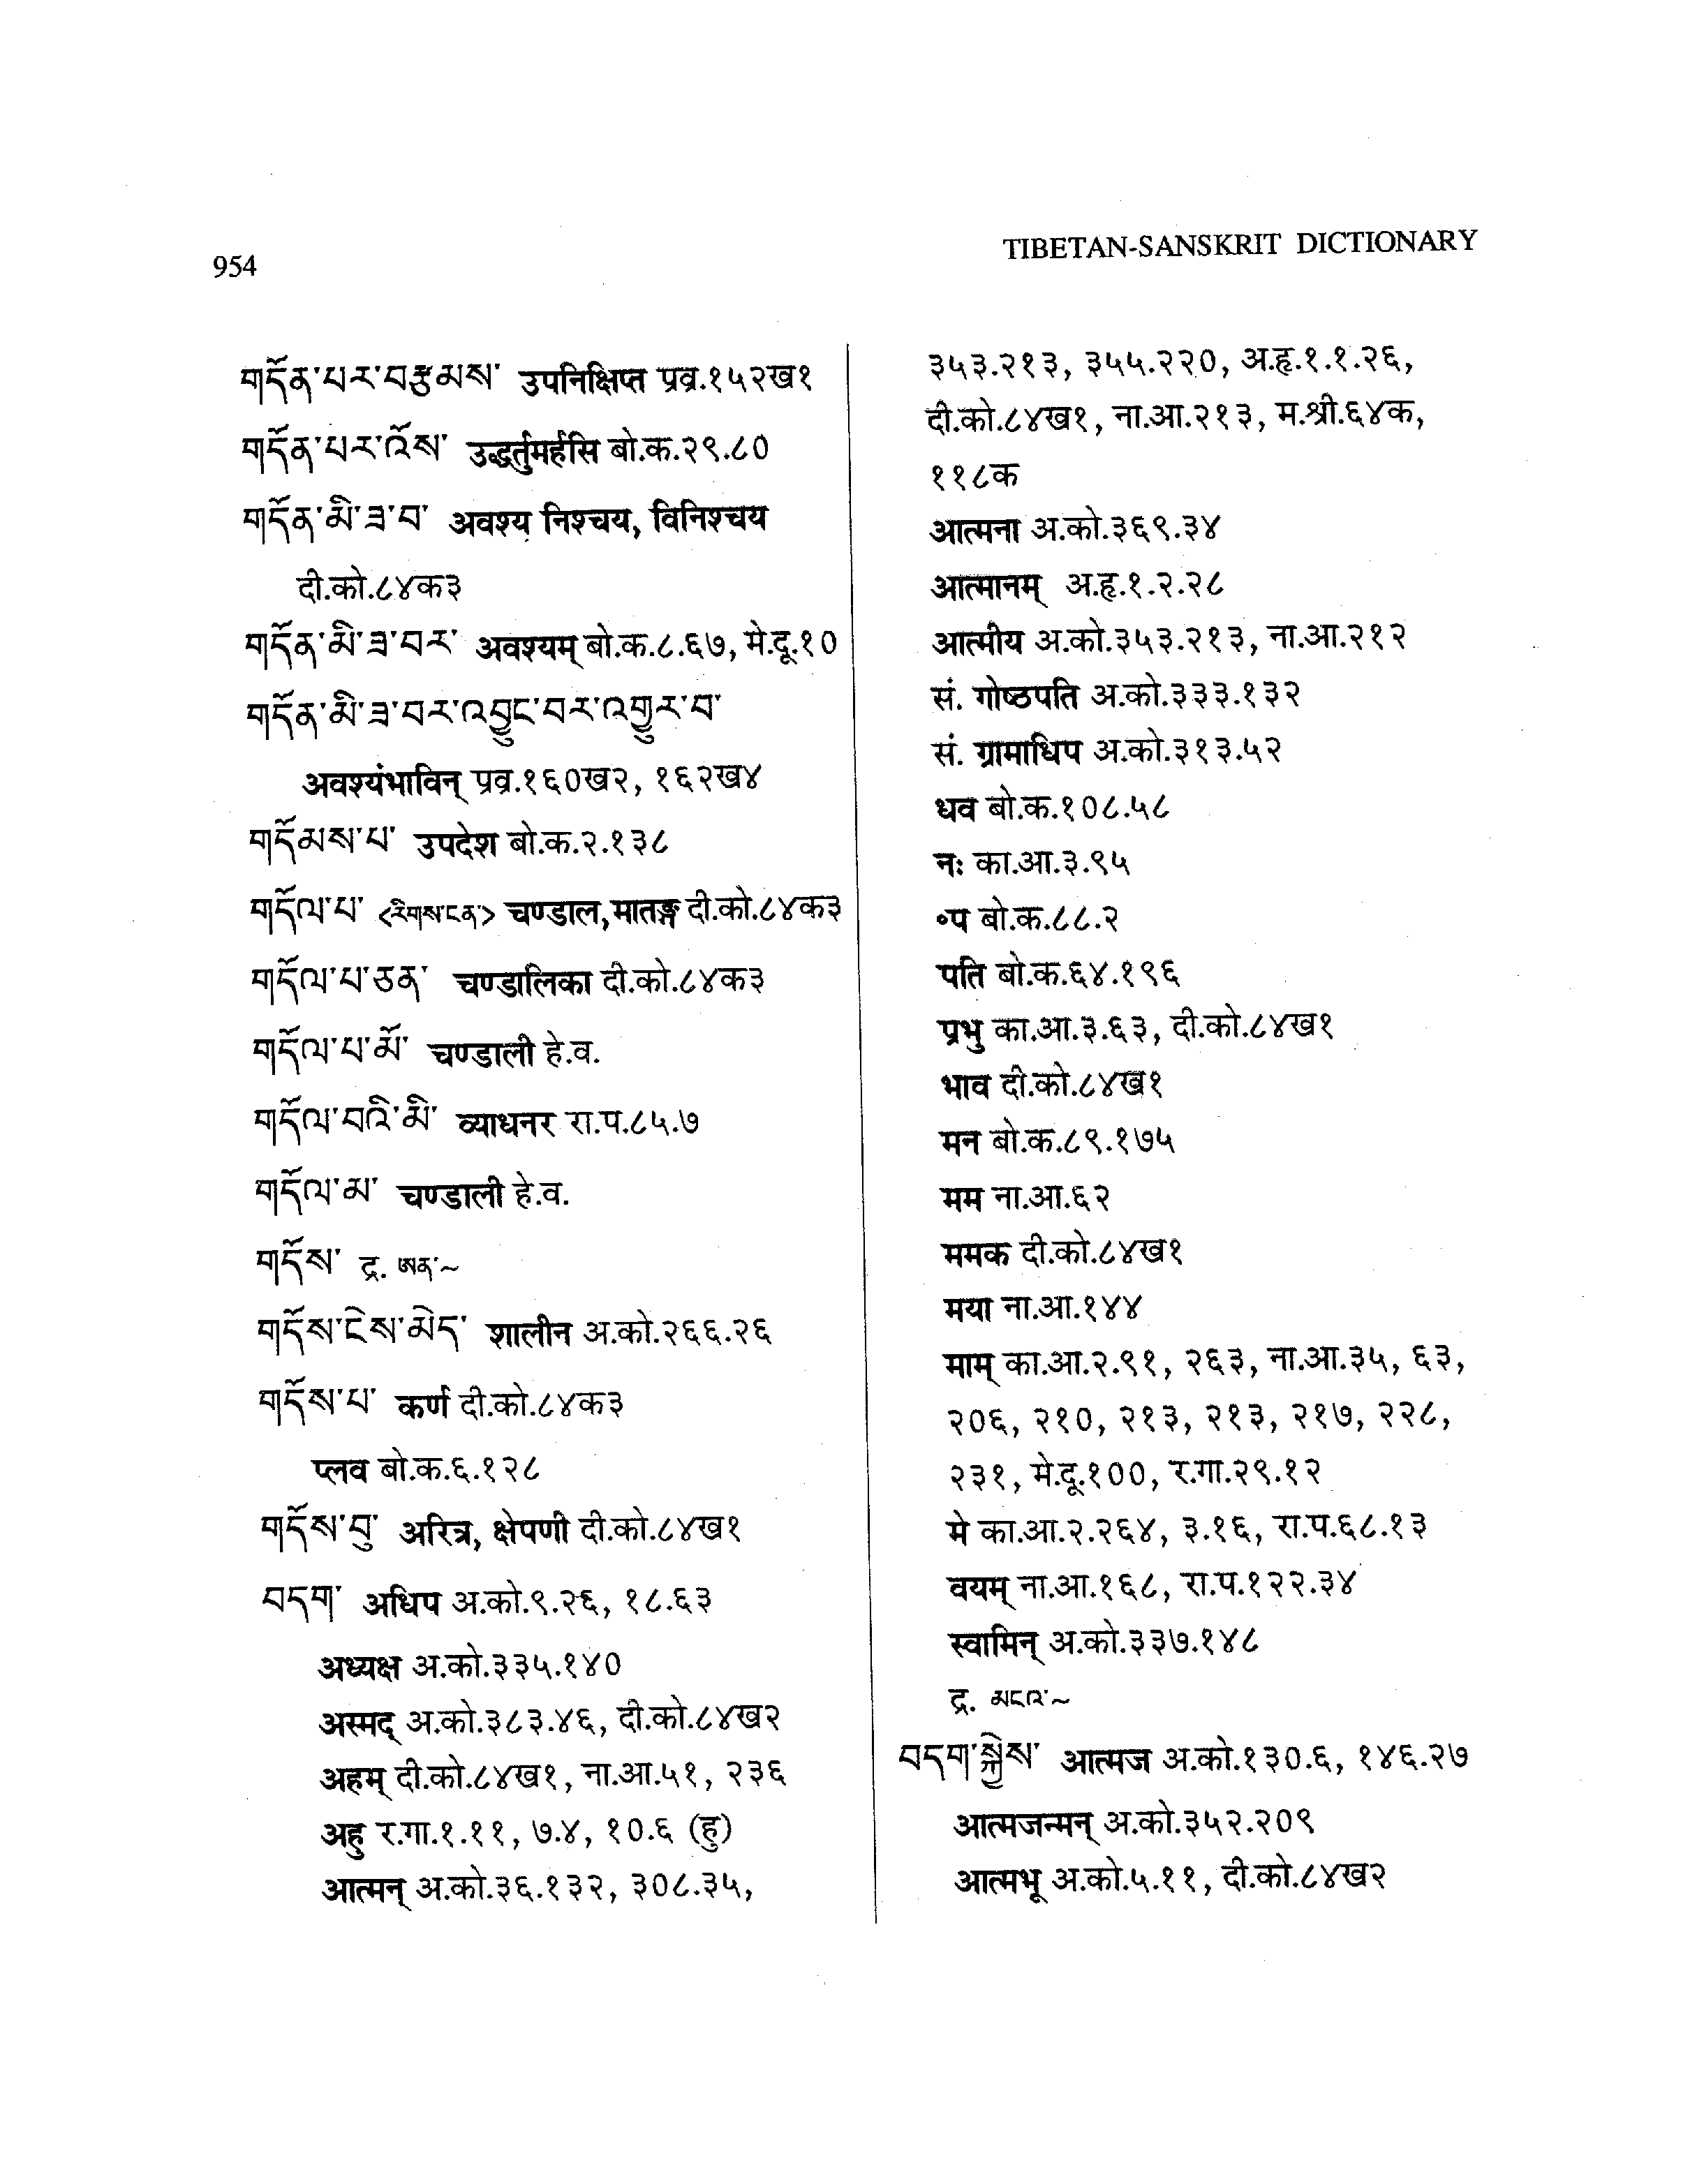 954
TIBETAN-SANSKRIT DICTIONARY
གདོན་པར་བརྩམས་ उपनिक्षिप्त प्रव्र.१५२ख१
གདོན་པར་འོས་ उद्धर्तुमर्हसि बो.क.२९.८०
གདོན་མི་ཟ་བ་ अवश्य निश्चय, विनिश्चय
दी.को.८४क३
གདོན་མི་ཟ་བར་ अवश्यम् बो.क.८.६७, मे.दू.१०
གདོན་མི་ཟ་བར་འབྱུང་བར་འགྱུར་བ་
अवश्यंभाविन् प्रव्र.१६०ख२, १६२ख४
གདོམས་པ་ उपदेश बो.क.२.१३८
གདོལ་པ་ <རིགས་ངན་> चण्डाल, मातङ्ग दी.को.८४क३
གདོལ་པ་ཅན་ चण्डालिका दी.को.८४क३
གདོལ་པ་མོ་ चण्डाली हे.व.
གདོལ་བའི་མི་ व्याधनर रा.प.८५.७
གདོལ་མ་ चण्डाली हे.व.
གདོས་ द्र. ཨན་~
གདོས་ངེས་མེད་ शालीन अ.को.२६६.२६
གདོས་པ་ कर्ण दी.को.८४क३
प्लव बो.क.६.१२८
གདོས་བུ་ अरित्र, क्षेपणी दी.को.८४ख१
བདག་ अधिप अ.को.९.२६, १८.६३
अध्यक्ष अ.को.३३५.१४०
अस्मद् अ.को.३८३.४६, दी.को.८४ख२
अहम् दी.को.८४ख१, ना.आ.५१, २३६
अहु र.गा.१.११, ७.४, १०.६ (हु)
आत्मन् अ.को.३६.१३२, ३०८.३५,
३५३.२१३, ३५५.२२०, अ.हृ.१.१.२६,
दी.को.८४ख१, ना.आ.२१३, म.श्री.६४क,
११८क
आत्मना अ.को.३६९.३४
आत्मानम् अ.हृ.१.२.२८
आत्मीय अ.को.३५३.२१३, ना.आ.२१२
सं. गोष्ठपति अ.को.३३३.१३२
सं. ग्रामाधिप अ.को.३१३.५२
धव बो.क.१०८.५८
नः का.आ.३.९५
॰प बो.क.८८.२
पति बो.क.६४.१९६
प्रभु का.आ.३.६३, दी.को.८४ख१
भाव दी.को.८४ख१
मन बो.क.८९.१७५
मम ना.आ.६२
ममक दी.को.८४ख१
मया ना.आ.१४४
माम् का.आ.२.९१, २६३, ना.आ.३५, ६३,
२०६, २१०, २१३, २१३, २१७, २२८,
२३१, मे.दू.१००, र.गा.२९.१२
मे का.आ.२.२६४, ३.१६, रा.प.६८.१३
वयम् ना.आ.१६८, रा.प.१२२.३४
स्वामिन् अ.को.३३७.१४८
द्र. མངའ་~
བདག་སྐྱེས་ आत्मज अ.को.१३०.६, १४६.२७
आत्मजन्मन् अ.को.३५२.२०९
आत्मभू अ.को.५.११, दी.को.८४ख२